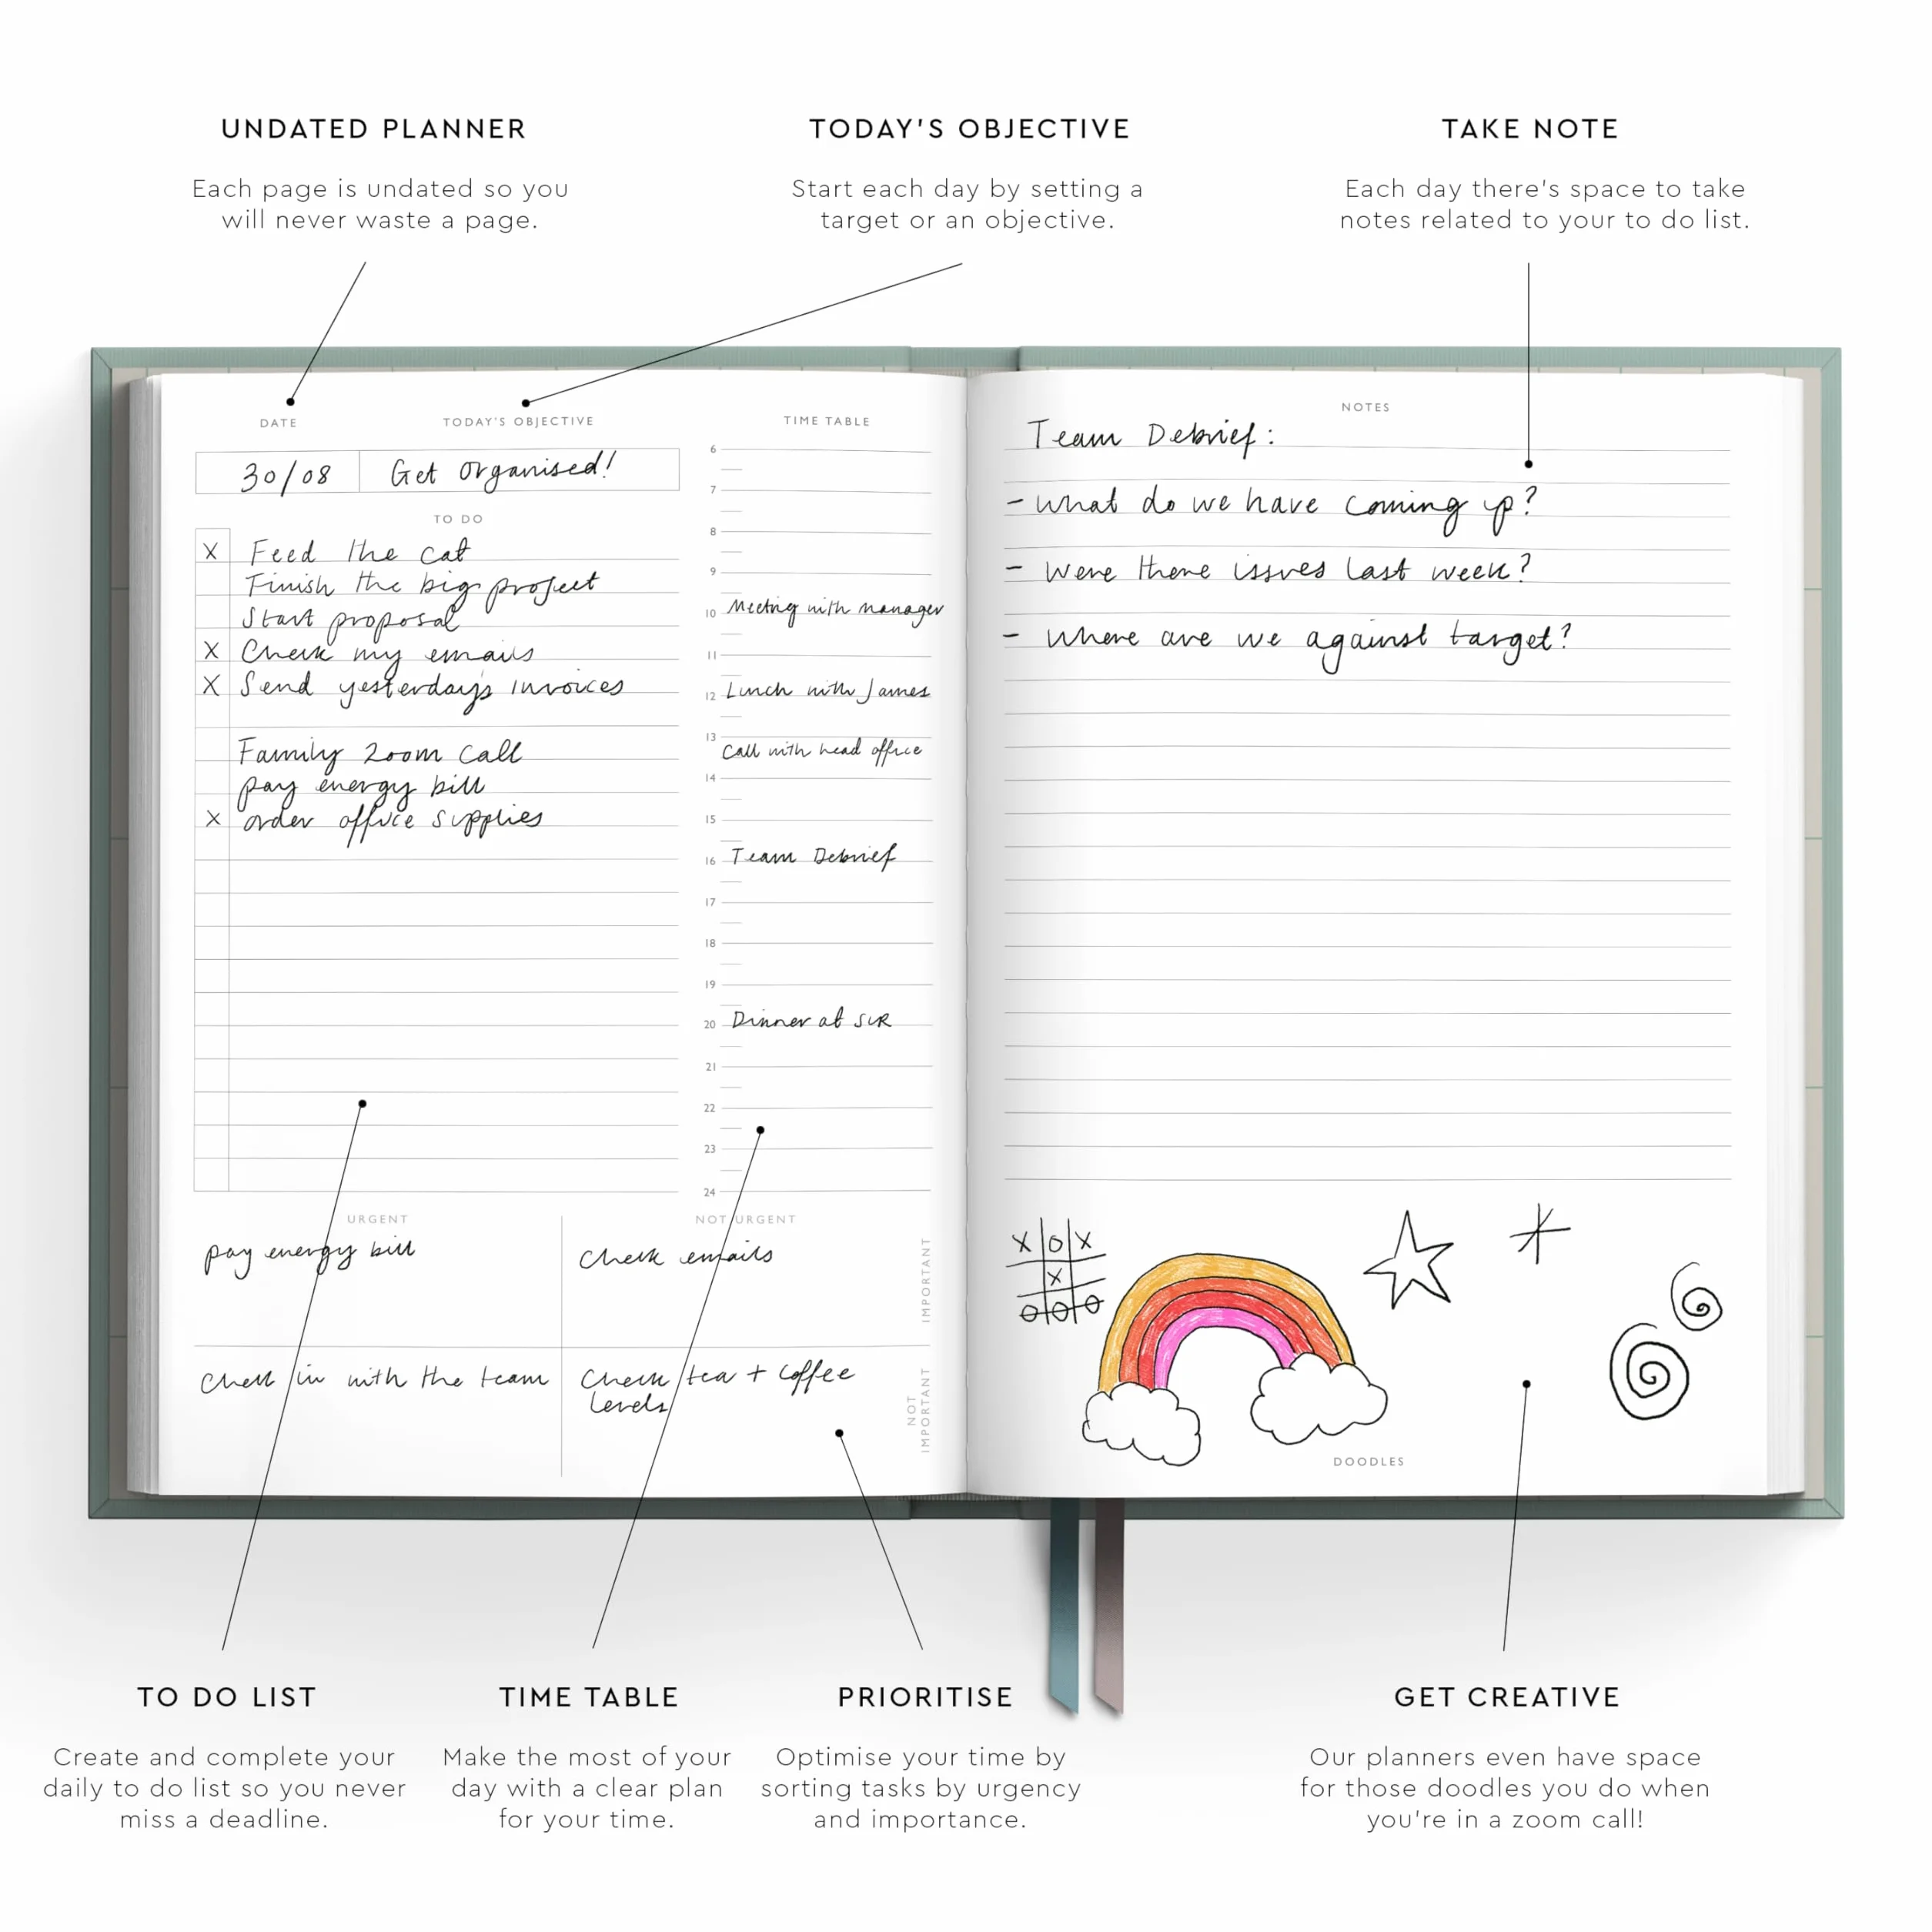 UNDATED PLANNER
Each page is undated so you
will never waste a page.
TODAY'S OBJECTIVE
Start each day by setting a
target or an objective.
TAKE NOTE
Each day there's space to take
notes related to your to do list.
DATE
TODAY'S OBJECTIVE
30/08
Get Organised!
TO DO
X Feed the cat
Finish the big project
Start proposal
X Check my emails
X Send yesterday's invoices
Family Zoom call
pay energy bill
X order office supplies
TIME TABLE
6
7
8
9
10 Meeting with manager
11
12 Lunch with James
13
Call with head office
14
15
16 Team Debrief
17
18
19
20 Dinner at
21
22
23
24
URGENT
NOT URGENT
pay energy bill
Check emails
IMPORTANT
Check in with the team
Check tea + coffee
levels
NOT
IMPORTANT
NOTES
Team Debrief:
- What do we have coming up?
- Were there issues last week?
- Where are we against target?
X O X
X
O O O
DOODLES
TO DO LIST
Create and complete your
daily to do list so you never
miss a deadline.
TIME TABLE
Make the most of your
day with a clear plan
for your time.
PRIORITISE
Optimise your time by
sorting tasks by urgency
and importance.
GET CREATIVE
Our planners even have space
for those doodles you do when
you're in a zoom call!